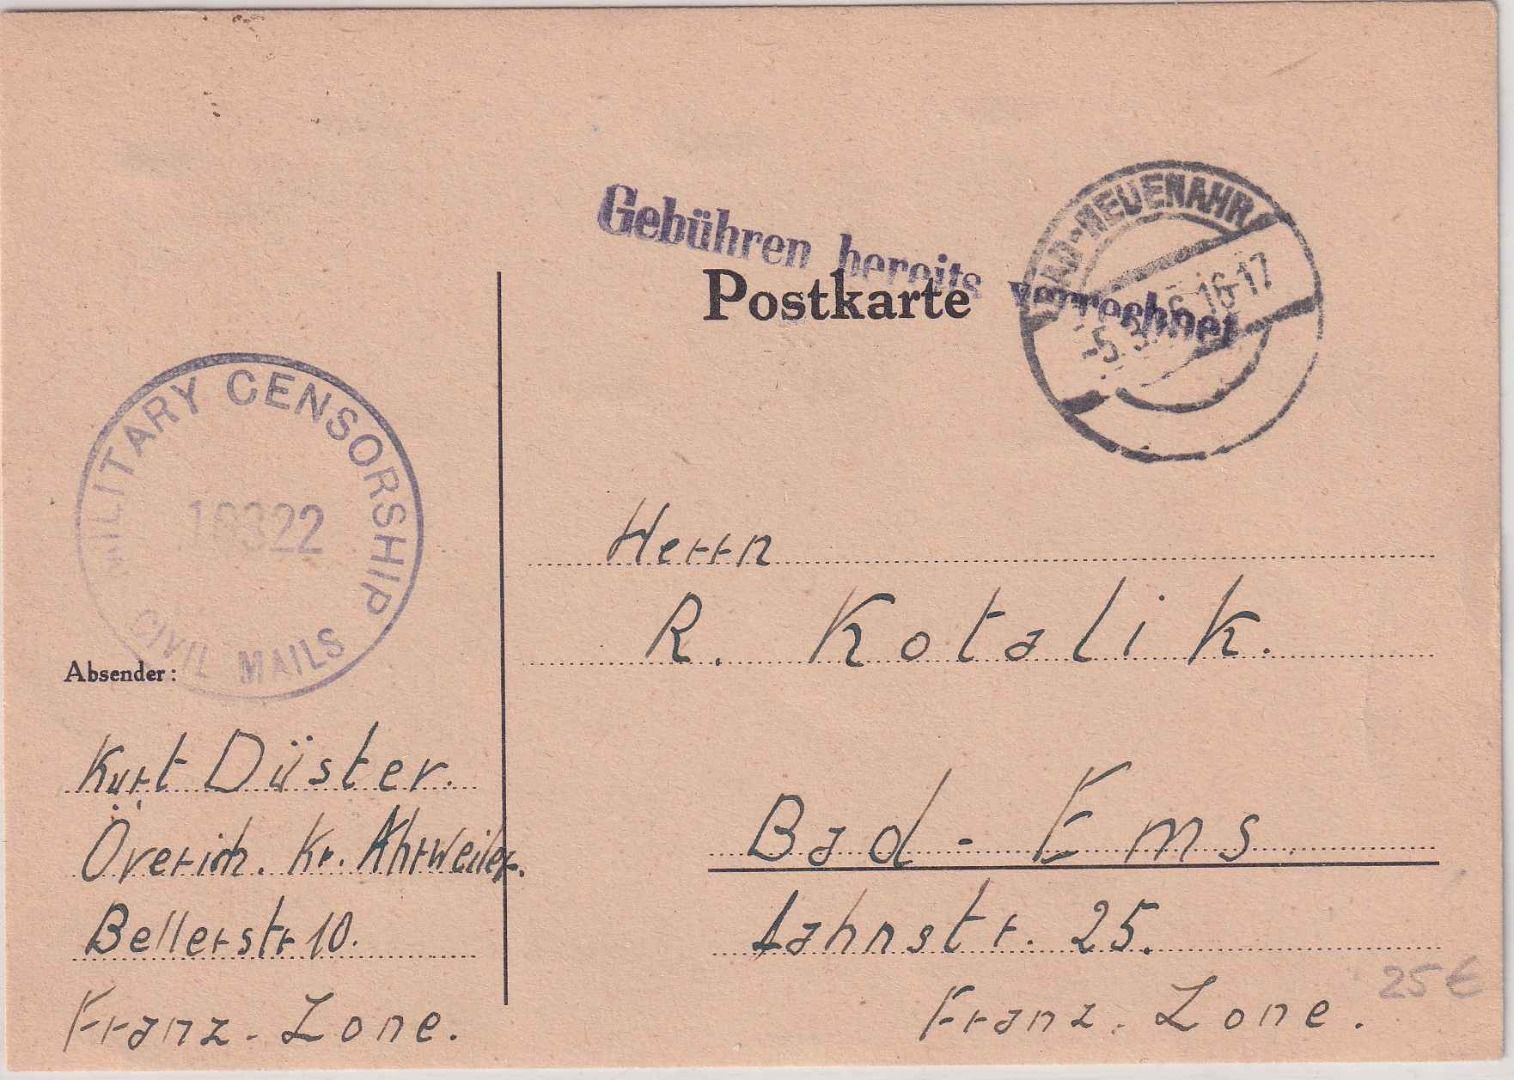 Gebühren bereits verrechnet
BAD-NEUENAHR
-5.3.46.16-17
Postkarte
MILITARY CENSORSHIP
CIVIL MAILS
Absender:
Kurt Düster.
Överich. Kr. Ahrweiler.
Bellerstr 10.
Franz. Zone.
Herrn
R. Kotalik.
Bad-Ems
Lahnstr. 25.
Franz. Zone.
25 €